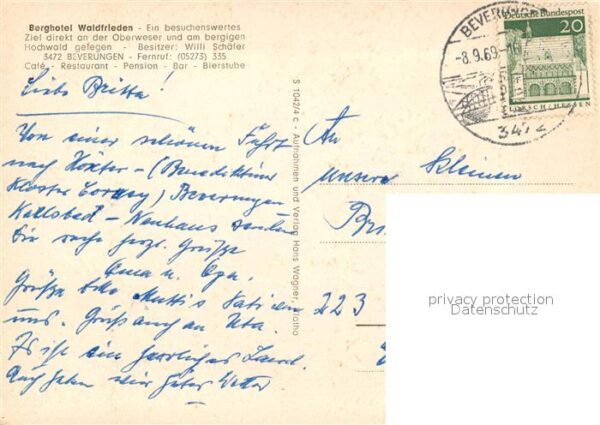 Berghotel Waldfrieden - Ein besuchenswertes
Ziel direkt an der Oberweser und am bergigen
Hochwald gelegen - Besitzer: Willi Schäfer
3472 BEVERUNGEN - Fernruf: (05273) 335
Café - Restaurant - Pension - Bar - Bierstube
Liebe Britta!
Von einer schönen Fahrt
nach Höxter - (Benediktiner
Kloster Corvey) Beverungen
Karlshafen - Neuhaus senden
Dir recht herzl. Grüße
Oma u. Opa.
Grüße bitte Mutti
uns. Gruß auch an Uta.
Es ist ein herrliches Land.
Auch haben wir gutes Wetter
S 1042/4 c - Aufnahmen und Verlag Hans Wagner, Vlotho
An
unsere kleinen
223
BEVERUNGEN
-8.9.69-16
3472
Deutsche Bundespost
20
LORSCH/HESSEN
privacy protection
Datenschutz